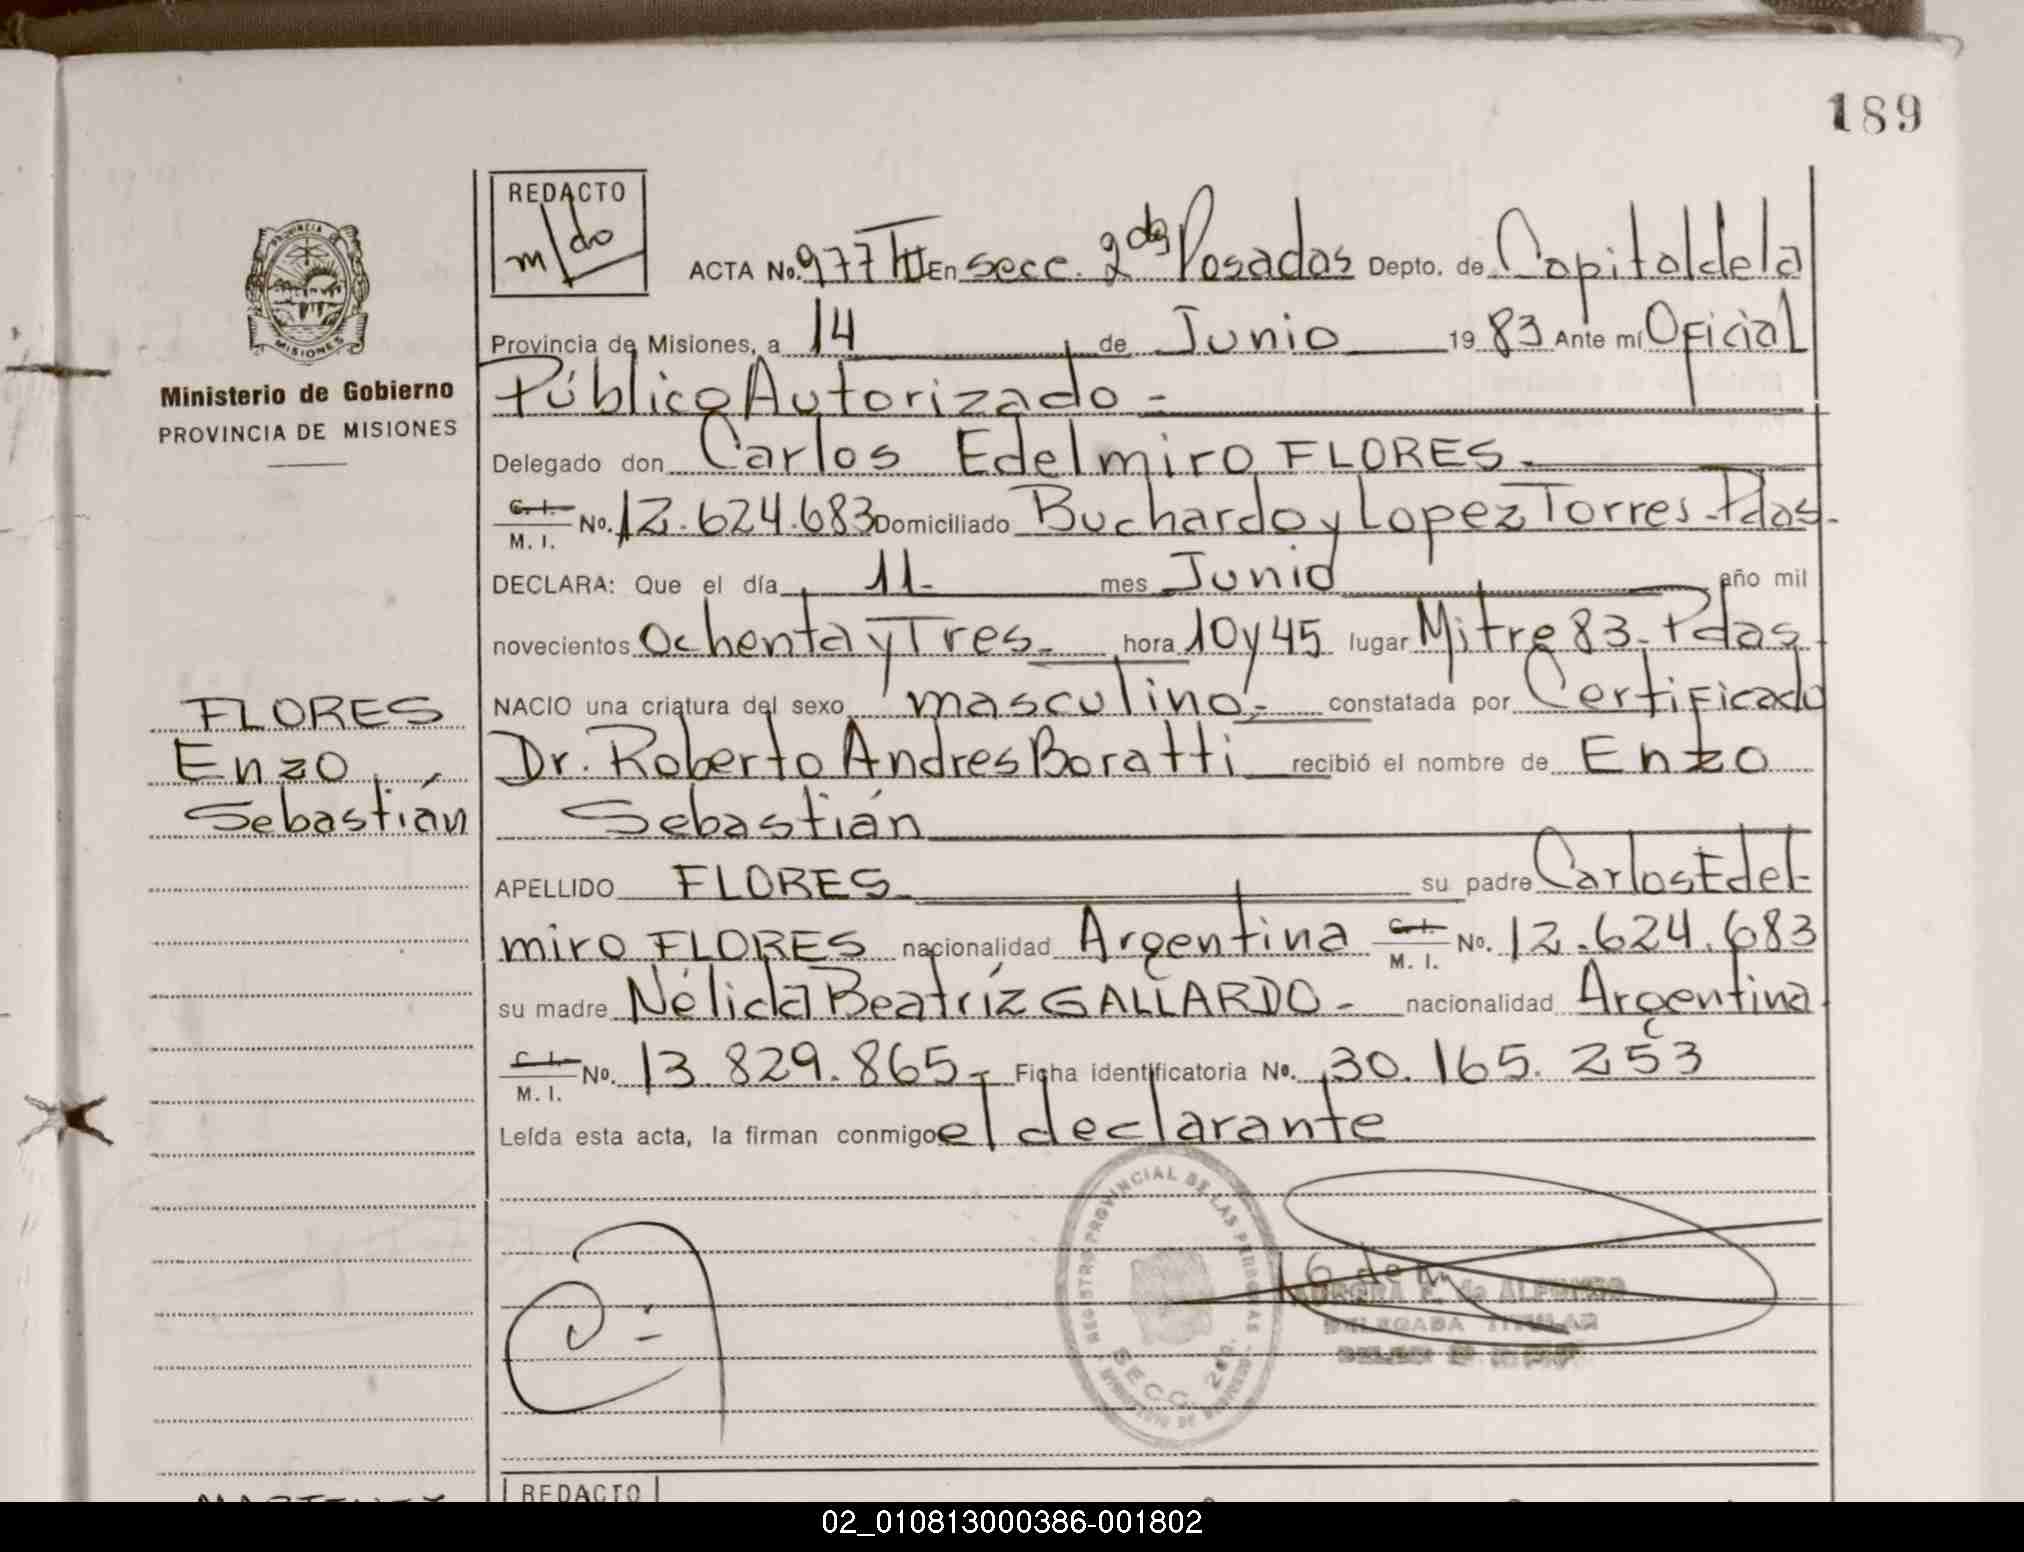 189
REDACTO
m/do
ACTA No. 977 TIII En secc. 2da Posadas Depto. de Capital de la
Provincia de Misiones, a 14 de Junio 1983 Ante mí Oficial
Público Autorizado -
Delegado don Carlos Edelmiro FLORES -
C. I. M. I. No. 12.624.683 Domiciliado Buchardo y Lopez Torres - Pdas -
DECLARA: Que el día 11 - mes Junio año mil
novecientos Ochenta y Tres - hora 10 y 45 lugar Mitre 83 - Pdas -
NACIO una criatura del sexo masculino - constatada por Certificado
Dr. Roberto Andres Boratti recibió el nombre de Enzo
Sebastián
APELLIDO FLORES su padre Carlos Edel-
miro FLORES nacionalidad Argentina C. I. M. I. No. 12.624.683
su madre Nélida Beatríz GALLARDO - nacionalidad Argentina
C. I. M. I. No. 13.829.865 - Ficha identificatoria No. 30.165.253
Leída esta acta, la firman conmigo el declarante
MISIONES
Ministerio de Gobierno
PROVINCIA DE MISIONES
FLORES
Enzo
Sebastián
REGISTRO PROVINCIAL DE LAS PERSONAS
SECC. 2da.
DELEGADA TITULAR
REDACTO
02_010813000386-001802